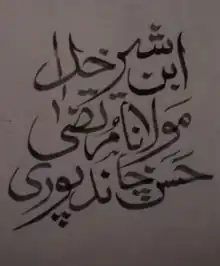 ابن شیر خدا
مولانا مرتضیٰ
حسن چاندپوری